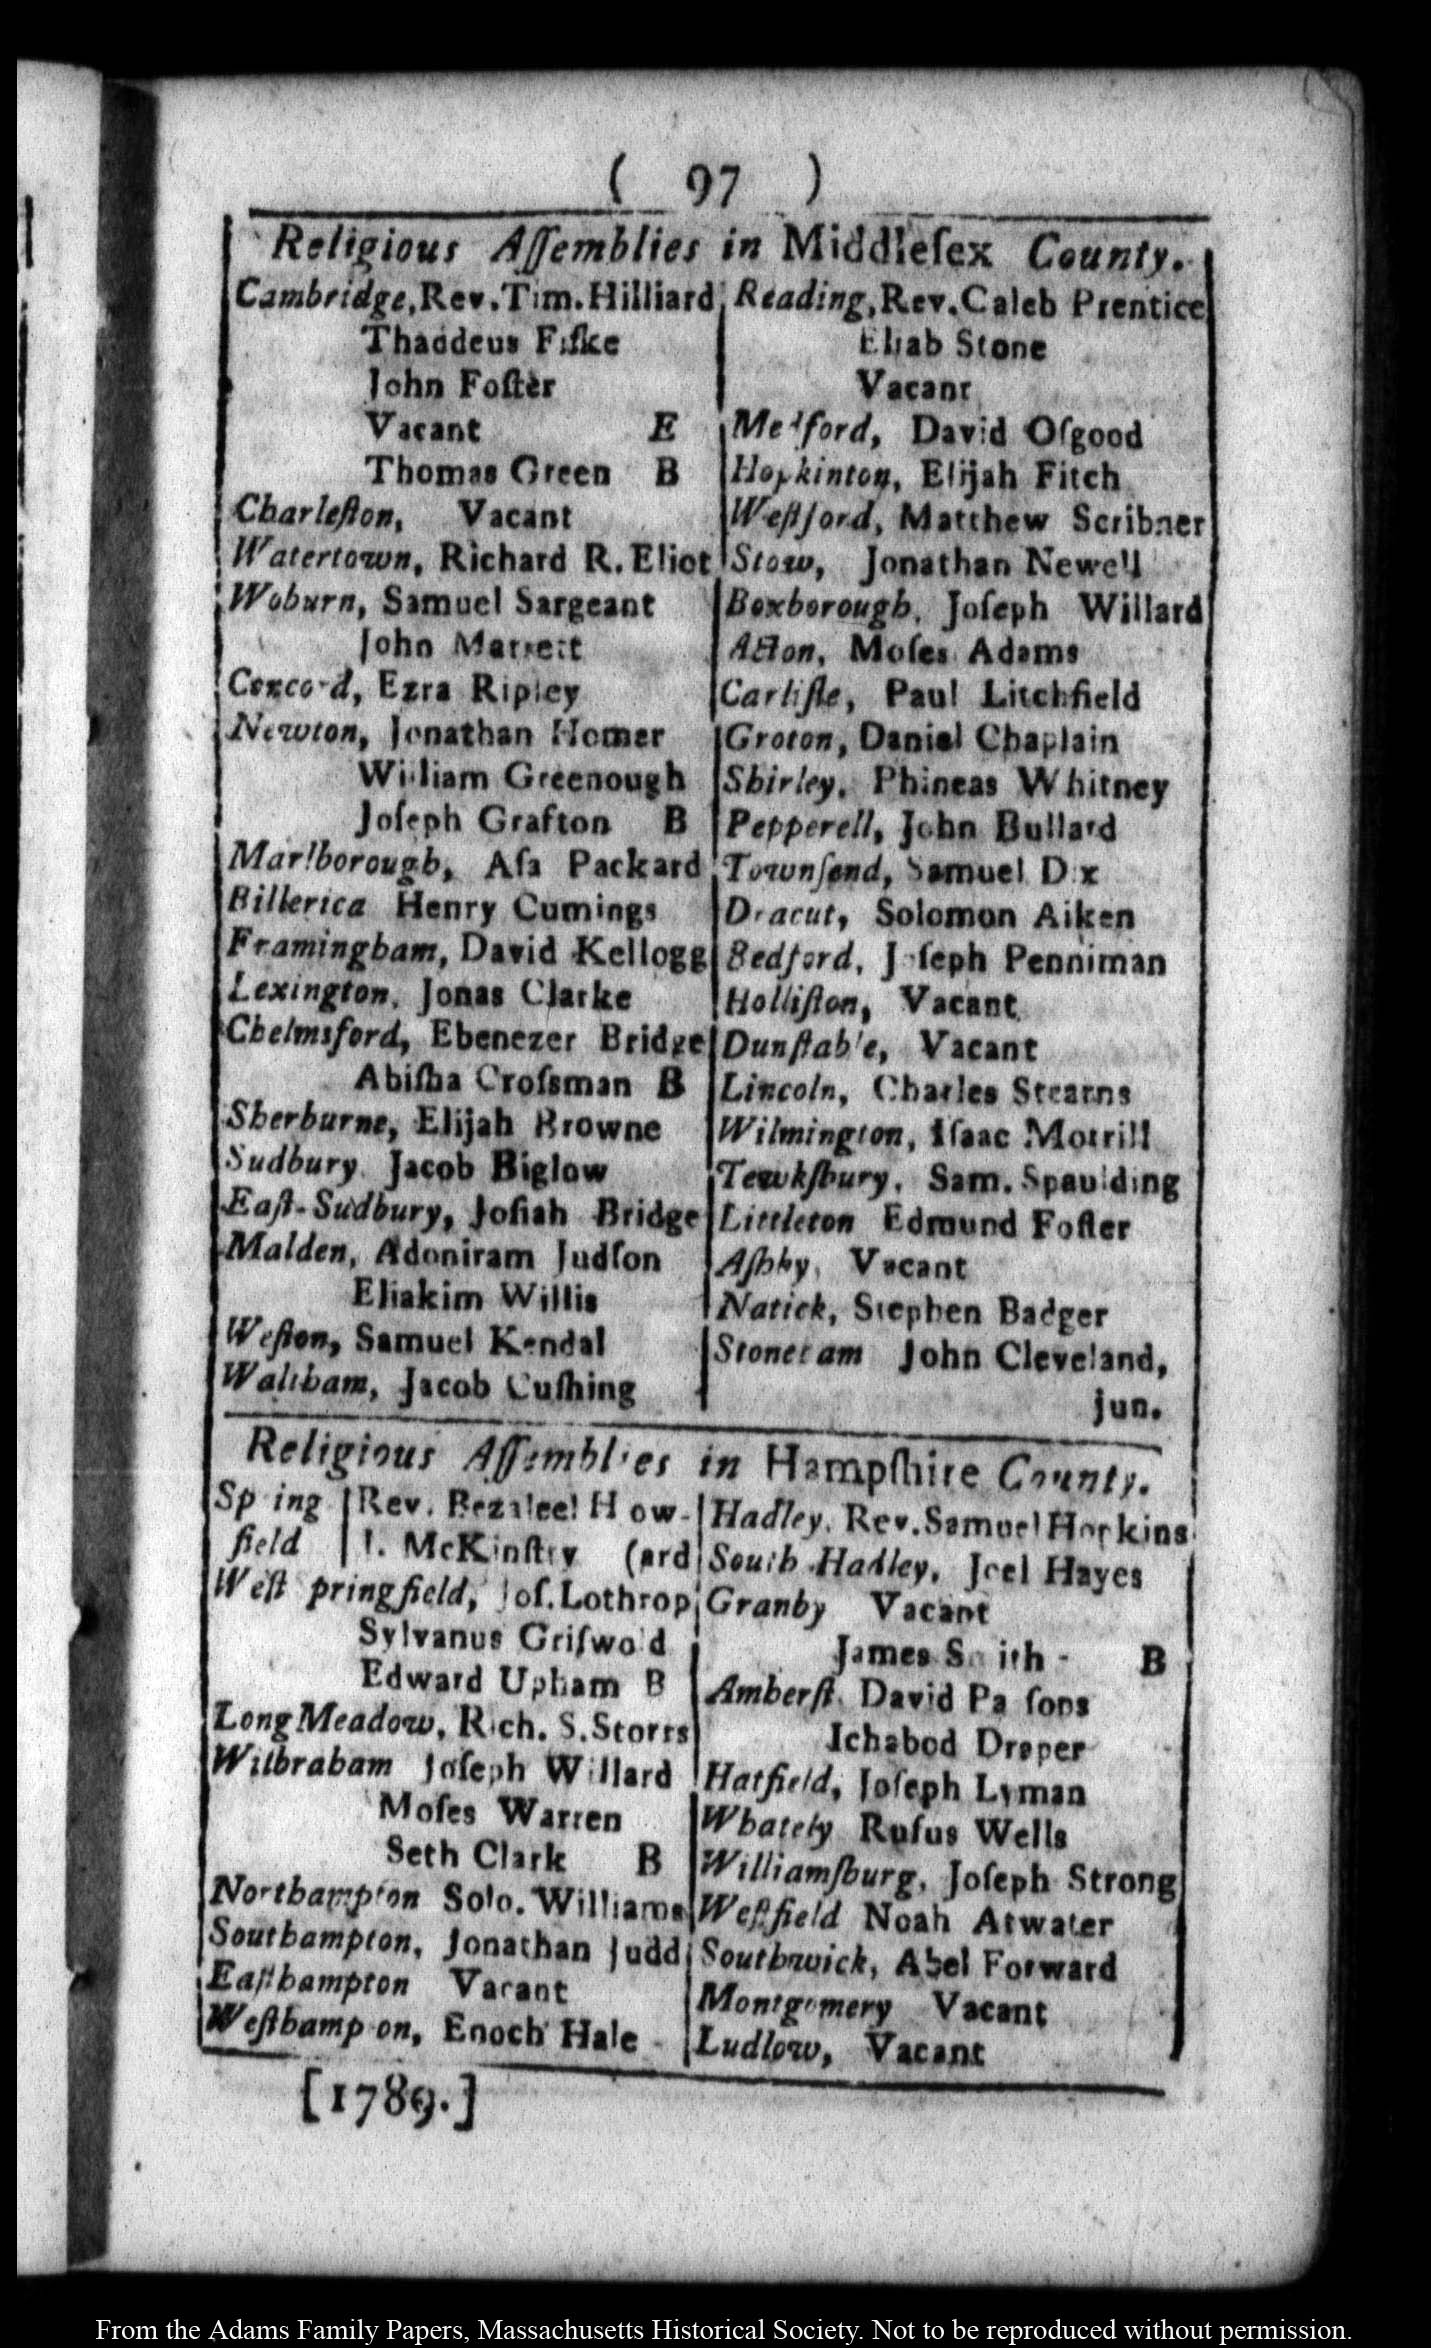 ( 97 )
Religious Aſſemblies in Middleſex County.
Cambridge, Rev. Tim. Hilliard
Thaddeus Fiſke
John Foſter
Vacant E
Thomas Green B
Charleſton, Vacant
Watertown, Richard R. Eliot
Woburn, Samuel Sargeant
John Marrett
Concord, Ezra Ripley
Newton, Jonathan Homer
William Greenough
Joſeph Grafton B
Marlborough, Aſa Packard
Billerica Henry Cumings
Framingham, David Kellogg
Lexington, Jonas Clarke
Chelmsford, Ebenezer Bridge
Abiſha Croſsman B
Sherburne, Elijah Browne
Sudbury Jacob Biglow
Eaſt-Sudbury, Joſiah Bridge
Malden, Adoniram Judſon
Eliakim Willis
Weſton, Samuel Kendal
Waltham, Jacob Cuſhing
Reading, Rev. Caleb Prentice
Eliab Stone
Vacant
Medford, David Oſgood
Hopkinton, Elijah Fitch
Weſtford, Matthew Scribner
Stow, Jonathan Newell
Boxborough, Joſeph Willard
Acton, Moſes Adams
Carliſle, Paul Litchfield
Groton, Daniel Chaplain
Shirley, Phineas Whitney
Pepperell, John Bullard
Townſend, Samuel Dix
Dracut, Solomon Aiken
Bedford, Joſeph Penniman
Holliſton, Vacant
Dunſtable, Vacant
Lincoln, Charles Stearns
Wilmington, Iſaac Morrill
Tewkſbury, Sam. Spaulding
Littleton Edmund Foſter
Aſhby, Vacant
Natick, Stephen Badger
Stoneham John Cleveland,
jun.
Religious Aſſemblies in Hampſhire County.
Spring Rev. Bezaleel How-
field J. McKinſtry (ard
Weſt Springfield, Joſ. Lothrop
Sylvanus Griſwold
Edward Upham B
Long Meadow, Rich. S. Storrs
Wilbraham Joſeph Willard
Moſes Warren
Seth Clark B
Northampton Solo. Williams
Southampton, Jonathan Judd
Eaſthampton Vacant
Weſthampton, Enoch Hale
Hadley, Rev. Samuel Hopkins
South Hadley, Joel Hayes
Granby Vacant
James Smith - B
Amherſt, David Parſons
Ichabod Draper
Hatfield, Joſeph Lyman
Whately Rufus Wells
Williamſburg, Joſeph Strong
Weſtfield Noah Atwater
Southwick, Abel Forward
Montgomery Vacant
Ludlow, Vacant
[1789.]
From the Adams Family Papers, Massachusetts Historical Society. Not to be reproduced without permission.